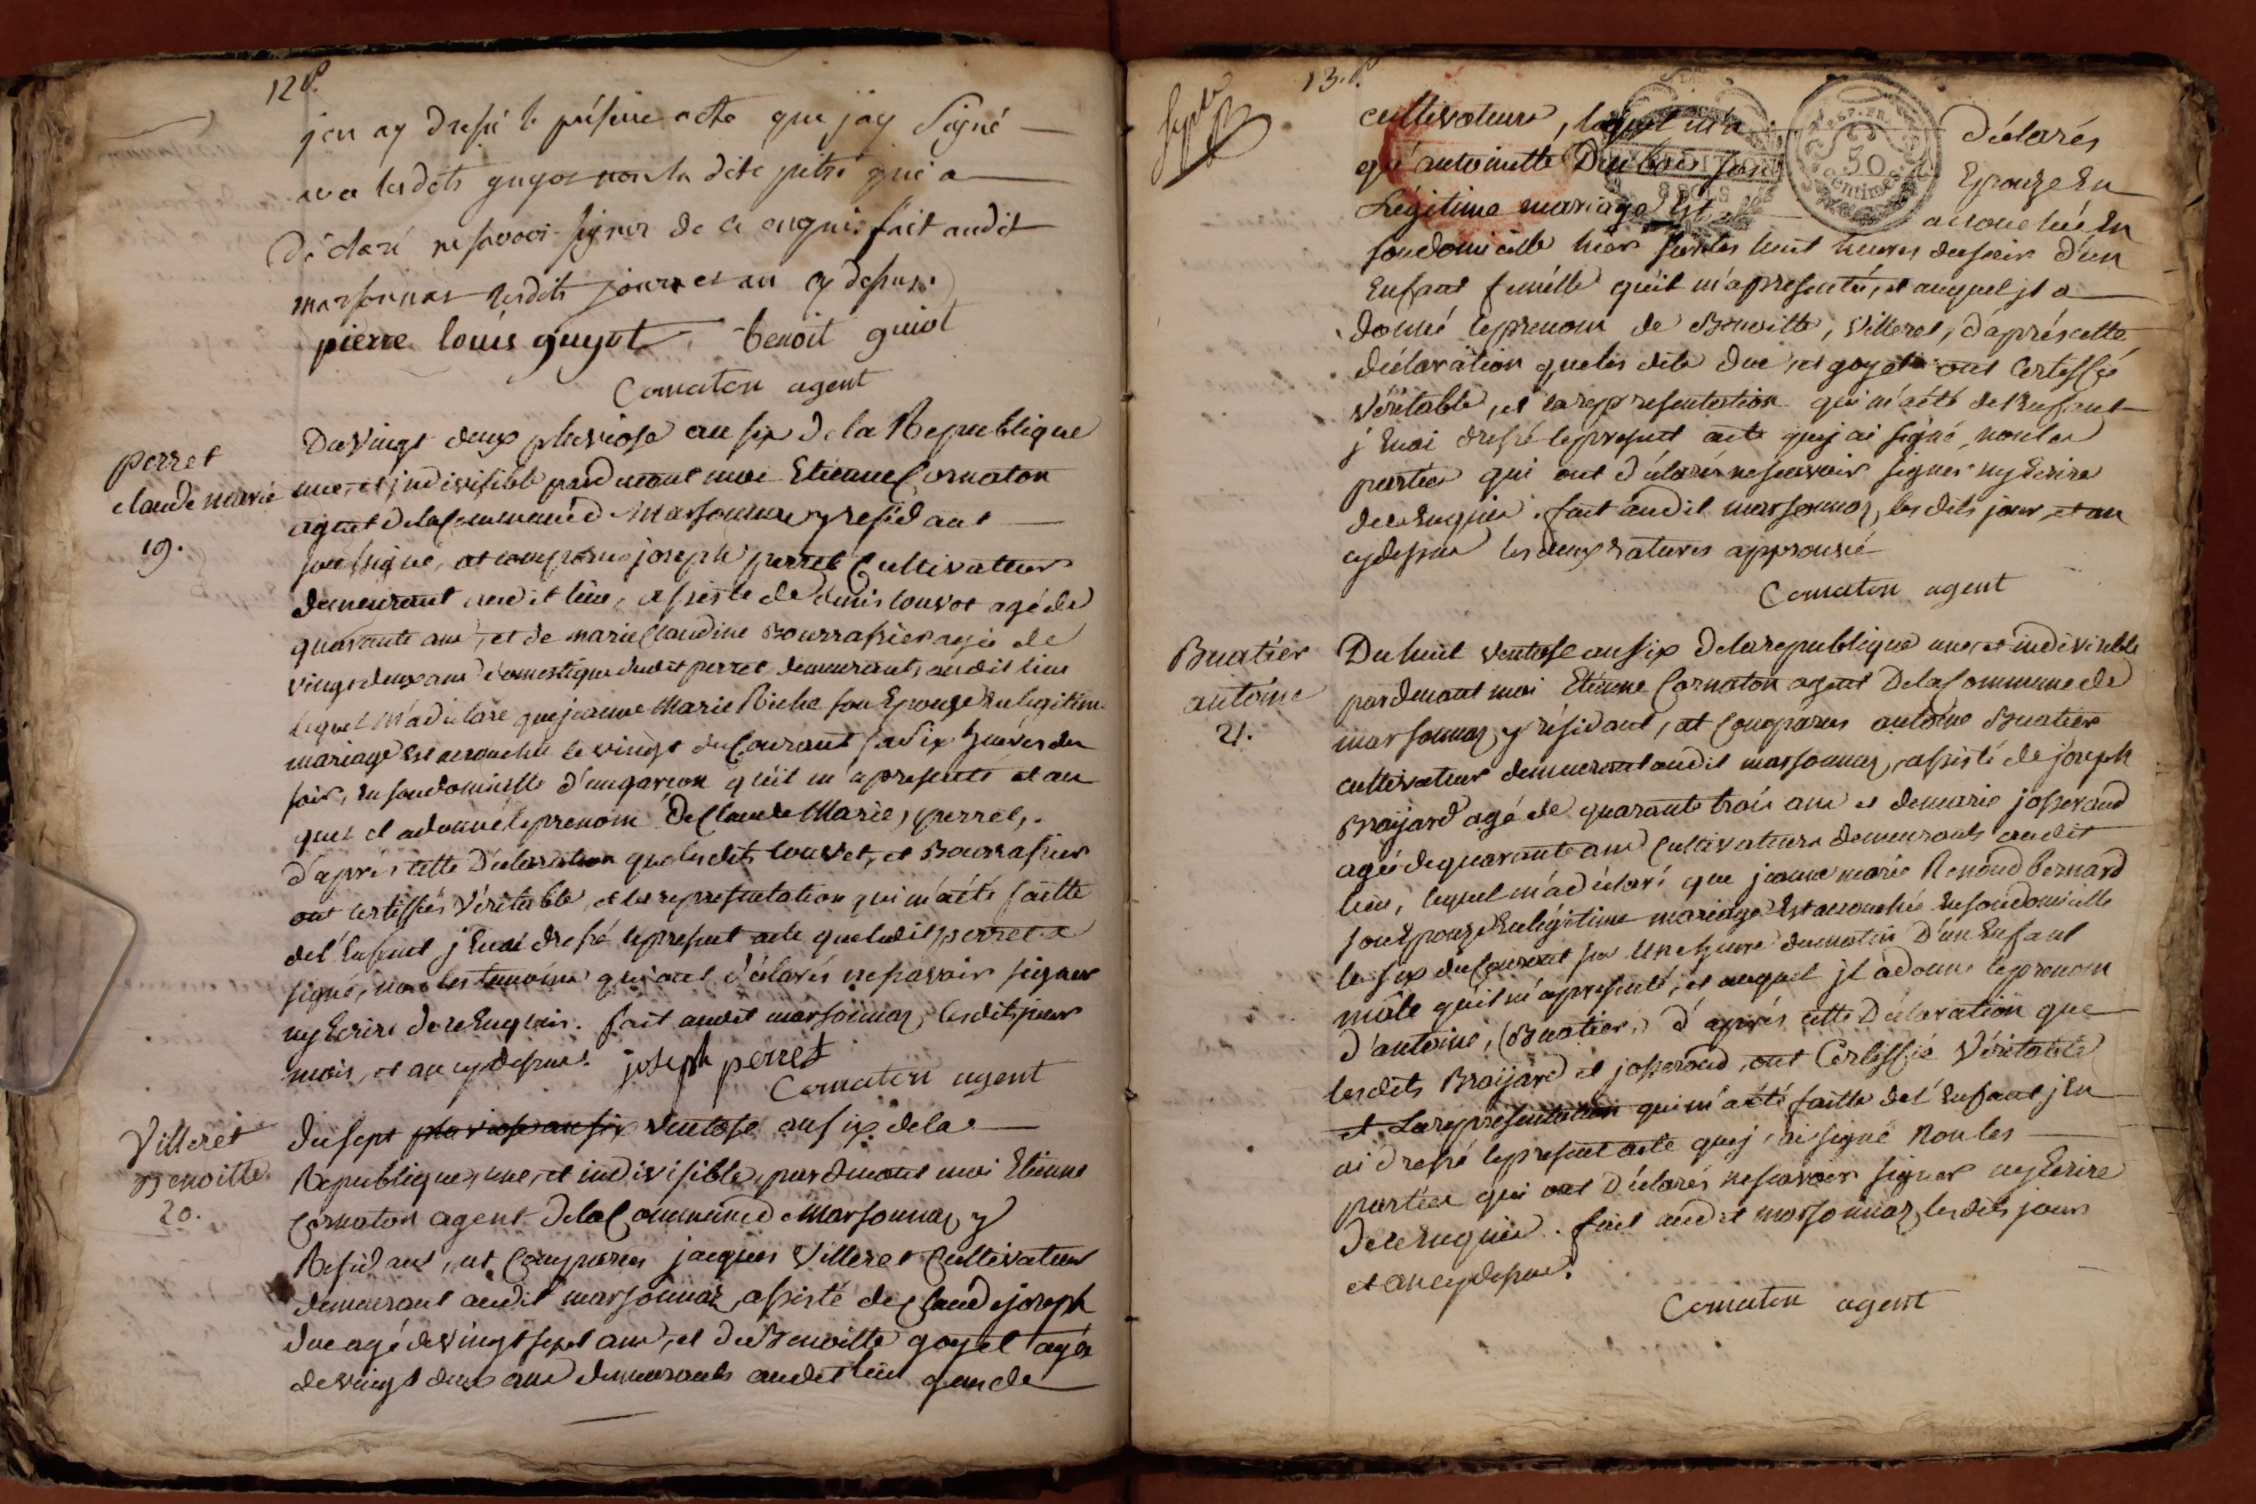 12.e
j'en ay dressé le présent acte que j'ay signé
avec lesdits guyot non la dite petit qui a
déclaré ne savoir signer de ce enquis fait audit
marsonnas lesdits jour et an cy dessus
pierre louis guyot benoit guiot
Cornaton agent
perret
claude marie
19.
Du vingt deux pluviose an six de la Republique
une, et jndivisible pardevant moi Etienne Cornaton
agent de la Commune de Marsonnaz y residant
soussigné, at comparu joseph perret Cultivateur
demeurant audit lieu, assisté de denis louvet agé de
quarante ans, et de marie Claudine Bourrassier agée de
vingt deux ans domestique dudit perret demeurants audit lieu
lequel m'a déclaré que jeanne Marie Riche son Epouze En legitime
mariage Est accouchée le vingt du Courant sur six heures du
soir, En son domicille d'un garcon qu'il m'a presenté et au
quel il a donné le prenom De Claude Marie, perret,.
d'après cette Déclaration que lesdits louvet, et Bourrassier
ont certiffiés véritable, et la representation qui m'a été faitte
de l'Enfant j'En ai dressé le present acte que ledit perret a
signé, non les temoins qui ont déclarés ne savoir signer
ny Ecrire de ce Enquis. fait audit marsonnaz, lesdits jour
mois, et an cy dessus. joseph perret
Cornaton agent
Villeret
Benoitte
20.
du sept pluviose an six ventose an six de la
Republique, une, et indivisible, pardevant moi Etienne
Cornaton agent De la Commune de Marsonnaz y
Résidant, at Comparu jacques Villeret Cultivateur
demeurant audit marsonnaz, assisté de Claude joseph
duc agé de vingt sept ans, et de Benoitte goyet agée
de vingt deux ans demeurants audit lieu
13.e
cultivateurs, lequel m'a Déclarés
qu'antoinette Dubois son Epouze En
Légitime mariage Est accouchée En
son domicille hier sur les huit heures du soir d'un
Enfant femelle qu'il m'a presentée, et auquel jl a
donné le prenom de Benoitte, Villeret, d'après cette
déclaration que les dits duc et goyet ont Certiffié
véritable, et la representation qui m'a été de l'Enfant
j'En ai dressé le present acte que j'ai signé, non les
parties qui ont déclarés ne savoir signer ny Ecrire
de ce Enquis. fait audit marsonnaz, les dits jour, et an
cy dessus les deux ratures approuvé
Cornaton agent
Buatier
antoine
21.
Du huit ventose an six de la republique une, et indivisible
pardevant moi Etienne Cornaton agent De la Commune de
marsonnaz y résidant, at Comparu antoine Buatier
cultivateur demeurant audit marsonnaz, assisté de joseph
Broyard agé de quarante trois ans et de marie josserand
agée de quarante ans Cultivateurs demeurants audit
lieu, lequel m'a déclaré que jeanne marie Renoud bernard
son Epouze En légitime mariage Est accouchée En son domicille
le six du Courant sur Une heure du matin D'un Enfant
mâle qu'il m'a presenté, et auquel jl a donné le prenom
d'antoine, Buatier, d'après cette Déclaration que
lesdits Broyard et josserand, ont Certiffié Véritable
et La representation qui m'a été faitte de l'Enfant j'En
ai dressé le present acte que j'ai signé Non les
parties qui ont Déclarés ne savoir signer ny Ecrire
De ce Enquis. fait audit marsonnaz, les dits jour
et an cy dessus.
Cornaton agent